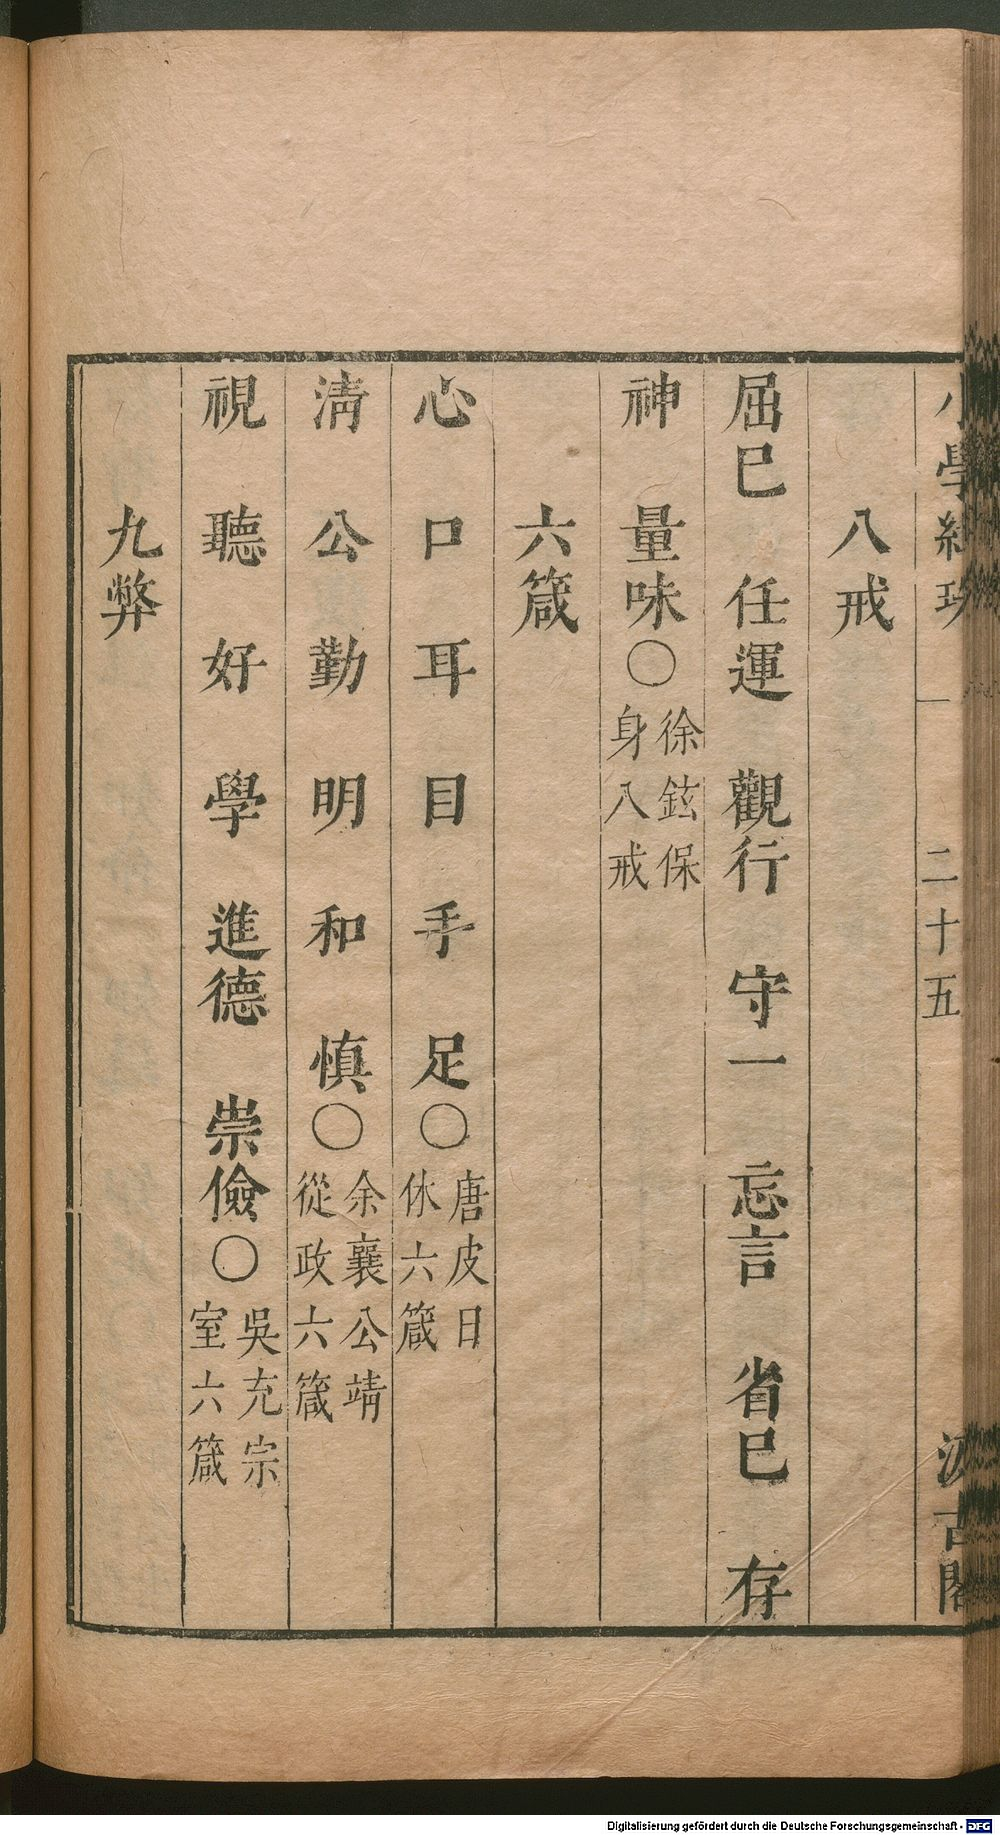 小學紺珠 一 二十五 汲古閣
八戒
屈已 任運 觀行 守一 忘言 省已 存
神 量味〇徐鉉保身八戒
六箴
心 口 耳 目 手 足〇唐皮日休六箴
淸 公 勤 明 和 慎〇余襄公靖從政六箴
視 聽 好 學 進德 崇儉〇吳充宗室六箴
九弊
Digitalisierung gefördert durch die Deutsche Forschungsgemeinschaft - DFG